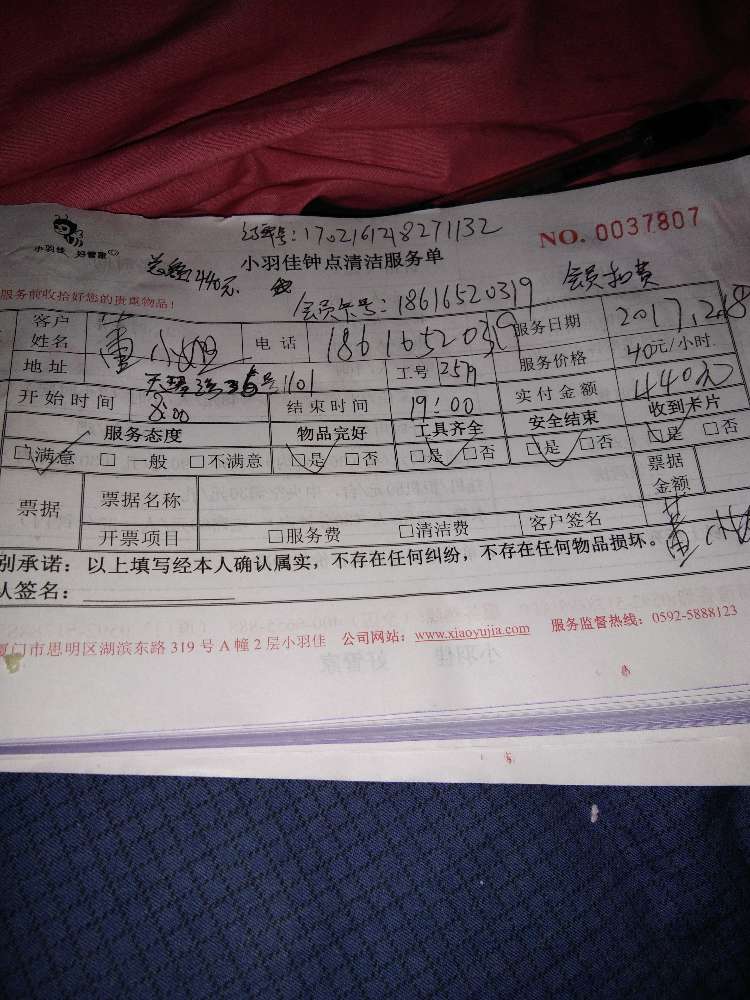 订单号：1702161218271132
NO. 0037807
小羽佳 好管家
小羽佳钟点清洁服务单
总额440元
会员卡号：18616520319 会员扣费
服务前收拾好您的贵重物品！
客户姓名 董小姐 电话 18616520319 服务日期 2017.2.18
地址 5号1101 工号 259 服务价格 40元/小时.
开始时间 8:00 结束时间 19:00 实付金额 440元
服务态度 物品完好 工具齐全 安全结束 收到卡片
☑满意 □一般 □不满意 ☑是 □否 ☑是 □否 ☑是 □否 ☑是 □否
票据 票据名称 票据金额
开票项目 □服务费 □清洁费 客户签名 董小
别承诺：以上填写经本人确认属实，不存在任何纠纷，不存在任何物品损坏。
人签名：
厦门市思明区湖滨东路 319 号 A 幢 2 层小羽佳 公司网站：www.xiaoyujia.com 服务监督热线：0592-5888123